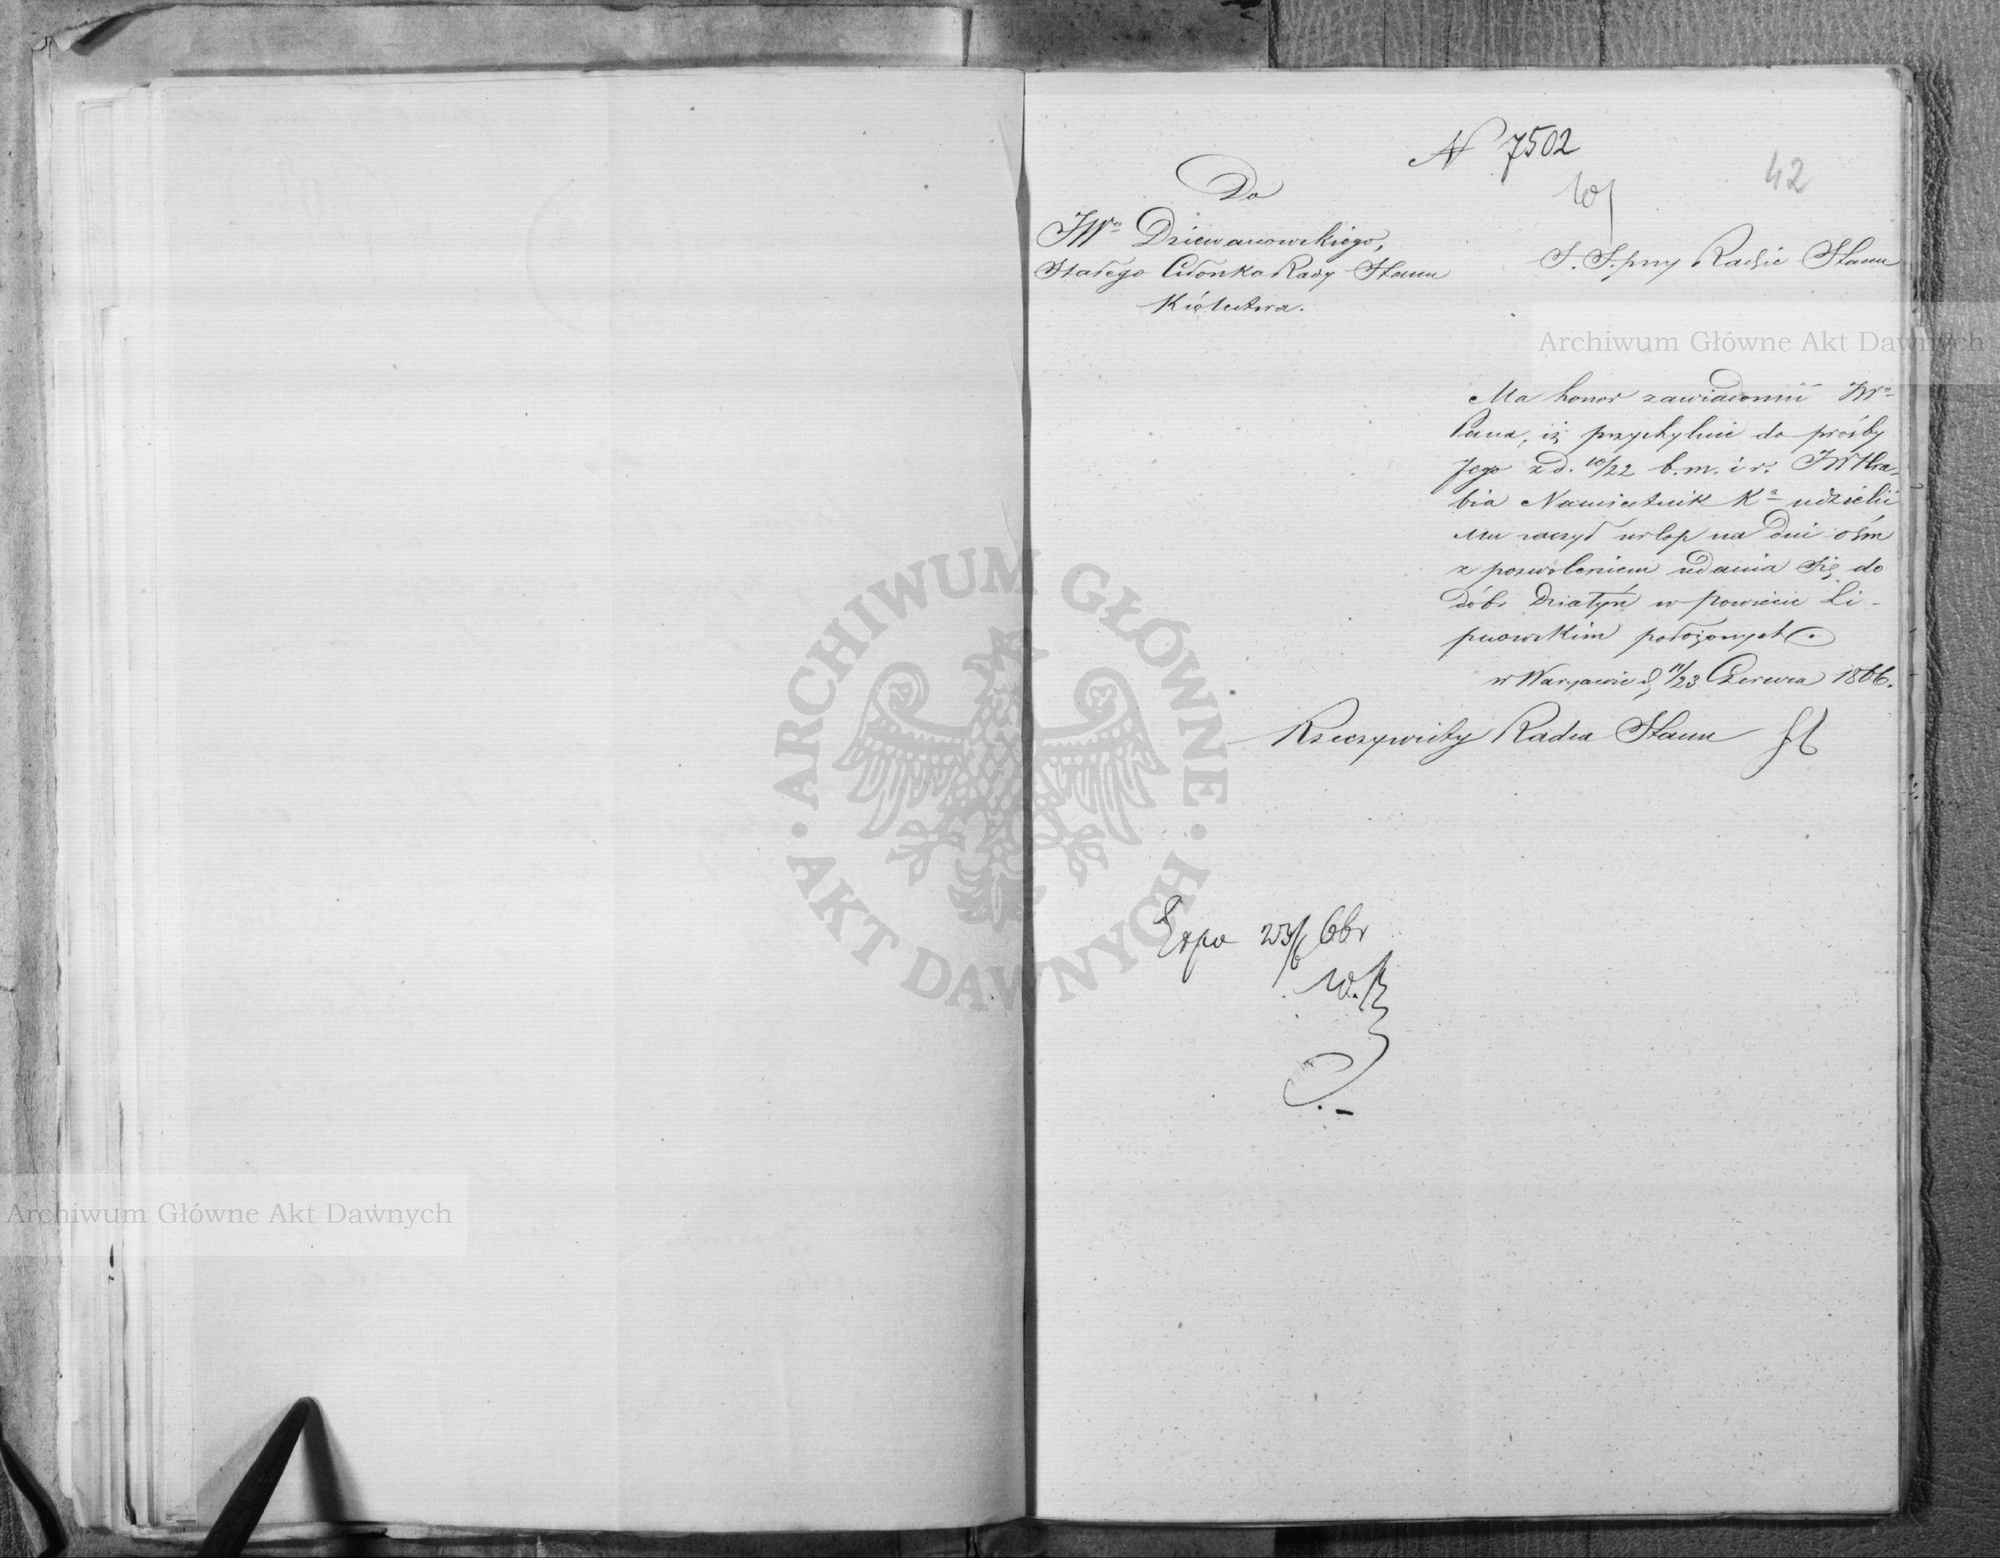 N 7502
42
Do
JWo Dziewanowskiego,
Stałego Członka Rady Stanu
Królestwa.
S. S. przy Radzie Stanu
Ma honor zawiadomić JWo
Pana, iż przychylnie do prośby
Jego z d. 10/22 b.m. i r. JW Hra-
bia Namiestnik Ka udzielić
Mu raczył urlop na Dni ośm
z pozwoleniem udania się do
dóbr Działyń w Powiecie Li-
pnowskim położonych.
w Warszawie d. 11/23 Czerwca 1866.
Rzeczywisty Radca Stanu
Expo 23/6 66 r
Archiwum Główne Akt Dawnych
Archiwum Główne Akt Dawnych
ARCHIWUM GŁÓWNE
AKT DAWNYCH